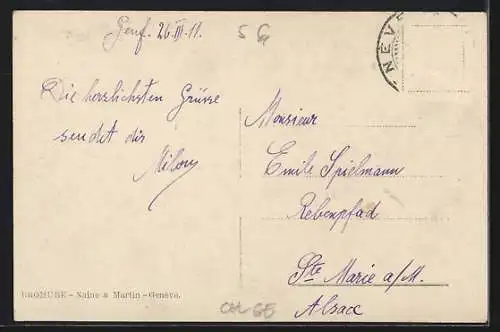 Genf. 26.III.11.
S G
NEVE
Die herzlichsten Grüsse
sendet dir
Milony
Monsieur
Emile Spielmann
Rebenpfad
Ste Marie a/M.
Alsace
BROMURE - Naine & Martin - Genève.
CH GE